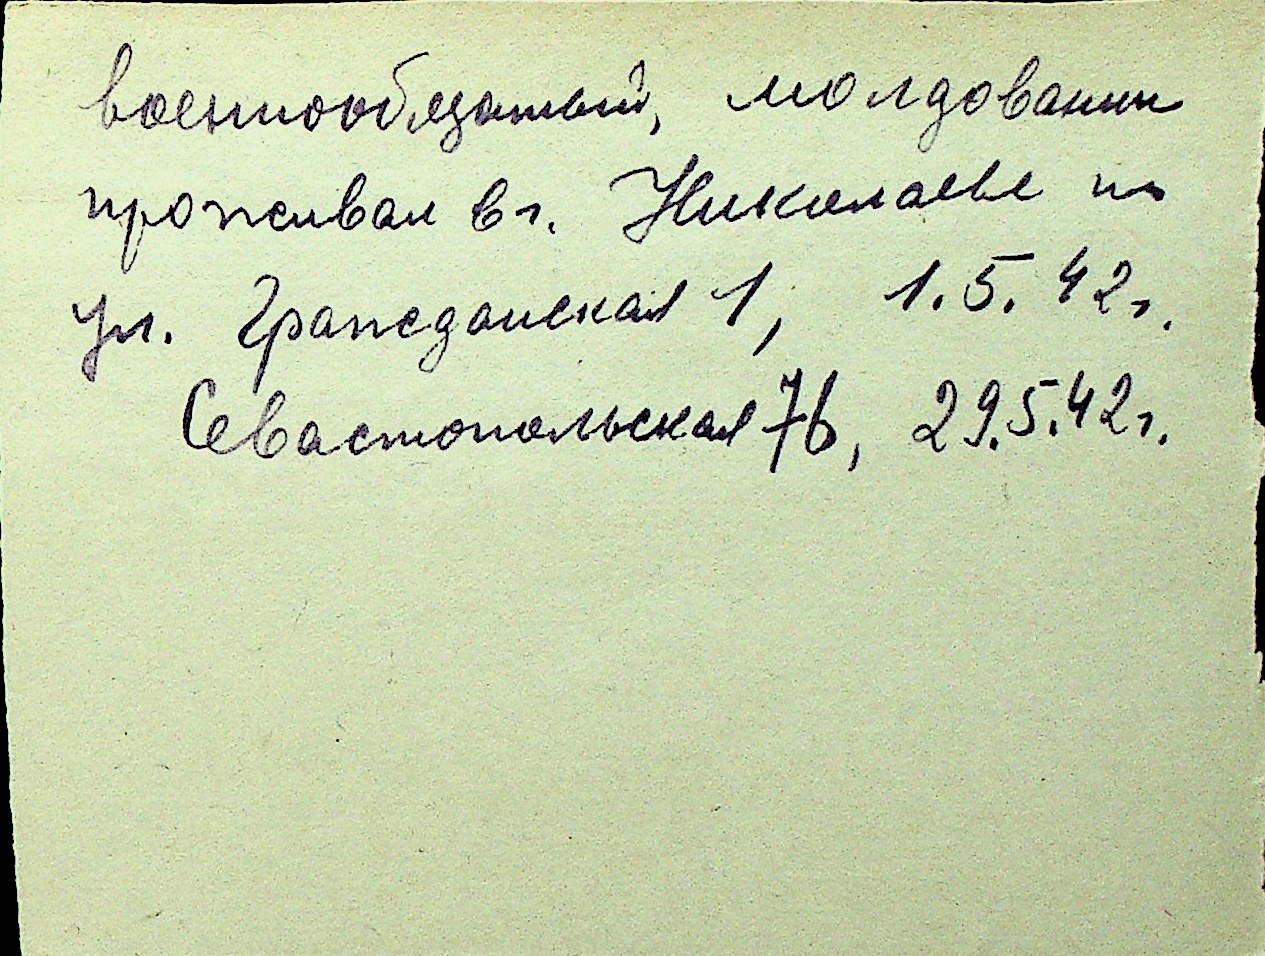 военнообязаный, молдованин
проживал в г. Николаеве по
ул. Гражданская 1, 1.5.42г.
Севастопольская 76, 29.5.42г.